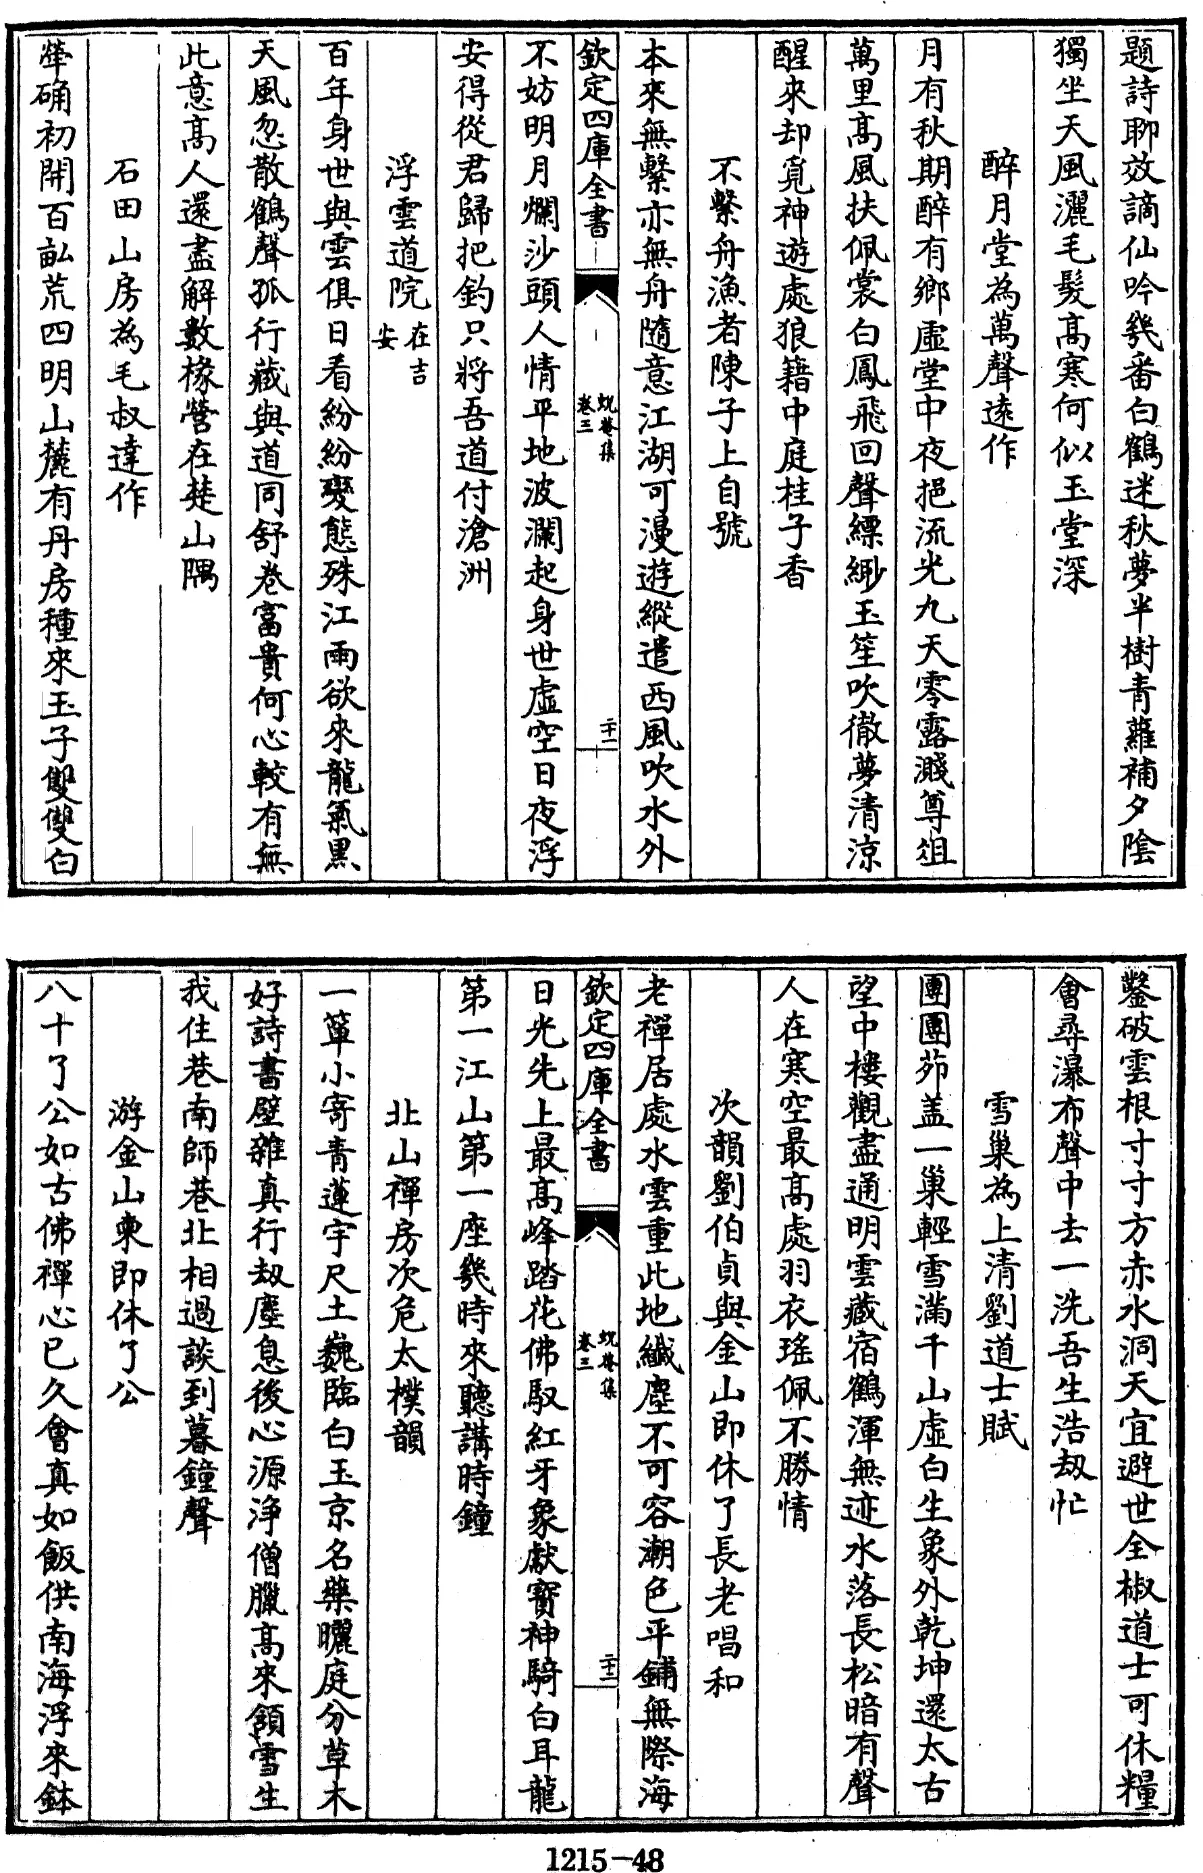 題詩聊效謫仙吟幾番白鶴迷秋夢半樹青蘿補夕陰
獨坐天風灑毛髮髙寒何似玉堂深
醉月堂為萬聲遠作
月有秋期醉有鄉虛堂中夜挹流光九天零露濺尊俎
萬里髙風扶佩裳白鳳飛回聲縹緲玉笙吹徹夢清涼
醒來却覓神遊處狼籍中庭桂子香
不繫舟漁者陳子上自號
本來無繫亦無舟隨意江湖可漫遊縱遣西風吹水外
欽定四庫全書
蛻菴集
卷三
二十一
不妨明月爛沙頭人情平地波瀾起身世虛空日夜浮
安得從君歸把釣只將吾道付滄洲
浮雲道院在吉安
百年身世與雲俱日看紛紛變態殊江雨欲來龍氣黒
天風忽散鶴聲孤行藏與道同舒卷富貴何心較有無
此意髙人還盡解數椽營在楚山隅
石田山房為毛叔達作
犖确初開百畝荒四明山麓有丹房種來玉子雙雙白
鑿破雲根寸寸方赤水洞天宜避世全椒道士可休糧
會尋瀑布聲中去一洗吾生浩刼忙
雪巢為上清劉道士賦
團團茆盖一巢輕雪滿千山虛白生象外乾坤還太古
望中樓觀盡通明雲藏宿鶴渾無迹水落長松暗有聲
人在寒空最髙處羽衣瑤佩不勝情
次韻劉伯貞與金山即休了長老唱和
老禪居處水雲重此地纖塵不可容潮色平鋪無際海
欽定四庫全書
蛻菴集
卷三
二十二
日光先上最髙峰踏花佛馭紅牙象獻寳神騎白耳龍
第一江山第一座幾時來聽講時鐘
北山禪房次危太樸韻
一簞小寄青蓮宇尺土巍臨白玉京名藥曬庭分草木
好詩書壁雜真行刼塵息後心源淨僧臘髙來額雪生
我住巷南師巷北相過談到暮鐘聲
游金山柬即休了公
八十了公如古佛禪心已久會真如飯供南海浮來鉢
1215-48